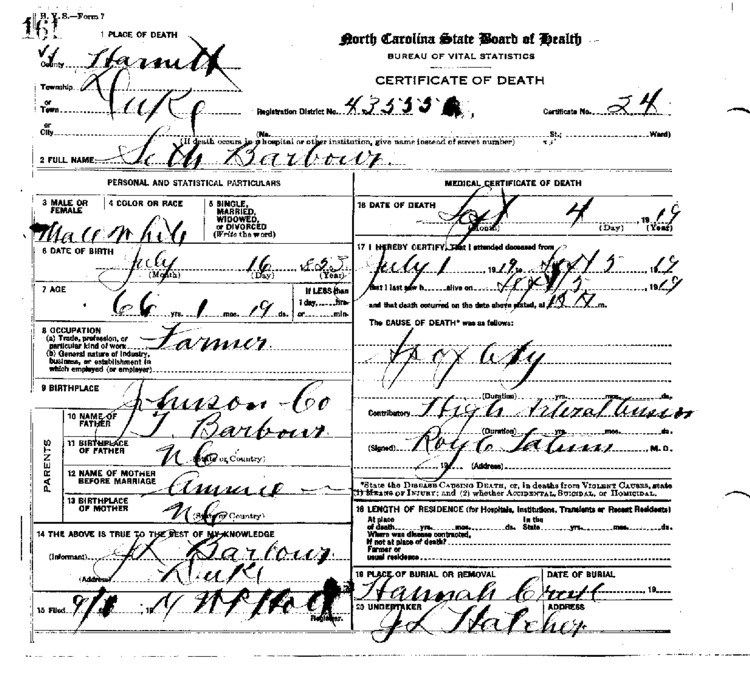 B. V. S.—Form 7
161
1 PLACE OF DEATH
North Carolina State Board of Health
BUREAU OF VITAL STATISTICS
CERTIFICATE OF DEATH
County Harnett
Township
or
Town Duke
Registration District No. 43555
Certificate No. 24
or
City
(No.
St.;
Ward)
(If death occurs in a hospital or other institution, give name instead of street number)
2 FULL NAME Seth Barbour
PERSONAL AND STATISTICAL PARTICULARS
3 MALE OR FEMALE
4 COLOR OR RACE
5 SINGLE, MARRIED, WIDOWED, or DIVORCED (Write the word)
Male White
6 DATE OF BIRTH
July 16
(Month) (Day) (Year)
7 AGE
If LESS than
1 day, hrs.
66 yrs. 1 mos. 19 ds.
or min.
8 OCCUPATION
(a) Trade, profession, or
particular kind of work Farmer
(b) General nature of industry,
business, or establishment in
which employed (or employer)
9 BIRTHPLACE
Johnson Co
PARENTS
10 NAME OF FATHER
Barbour
11 BIRTHPLACE OF FATHER
N C
(State or Country)
12 NAME OF MOTHER BEFORE MARRIAGE
13 BIRTHPLACE OF MOTHER
N C
(State or Country)
14 THE ABOVE IS TRUE TO THE BEST OF MY KNOWLEDGE
(Informant) Barbour
(Address) Duke
15 Filed 9/ 19
Registrar.
MEDICAL CERTIFICATE OF DEATH
16 DATE OF DEATH
Sept 4 1919
(Month) (Day) (Year)
17 I HEREBY CERTIFY, That I attended deceased from
July 1 1919 to Sept 5 1919
that I last saw h alive on Sept 5 1919
and that death occurred on the date above stated, at m.
The CAUSE OF DEATH* was as follows:
(Duration) yrs. mos. ds.
Contributory High
(Duration) yrs. mos. ds.
(Signed) Roy C Tatum M. D.
19 (Address)
*State the DISEASE CAUSING DEATH, or, in deaths from VIOLENT CAUSES, state
(1) MEANS OF INJURY; and (2) whether ACCIDENTAL, SUICIDAL, or HOMICIDAL.
18 LENGTH OF RESIDENCE (for Hospitals, Institutions, Transients or Recent Residents)
At place
of death yrs. mos. ds.
In the
State yrs. mos. ds.
Where was disease contracted,
if not at place of death?
Former or
usual residence
19 PLACE OF BURIAL OR REMOVAL
DATE OF BURIAL
Hannah 19
20 UNDERTAKER
ADDRESS
J L Hatcher